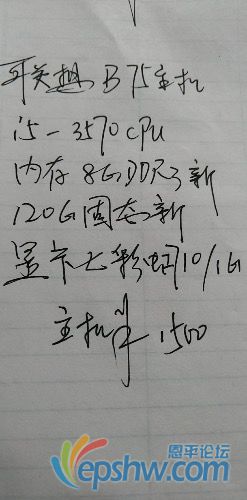 联想B75主机
i5-3570CPU
内存8G DDR3新
120G固态新
显卡七彩虹710/1G
主机 1500
恩平论坛
epshw.com